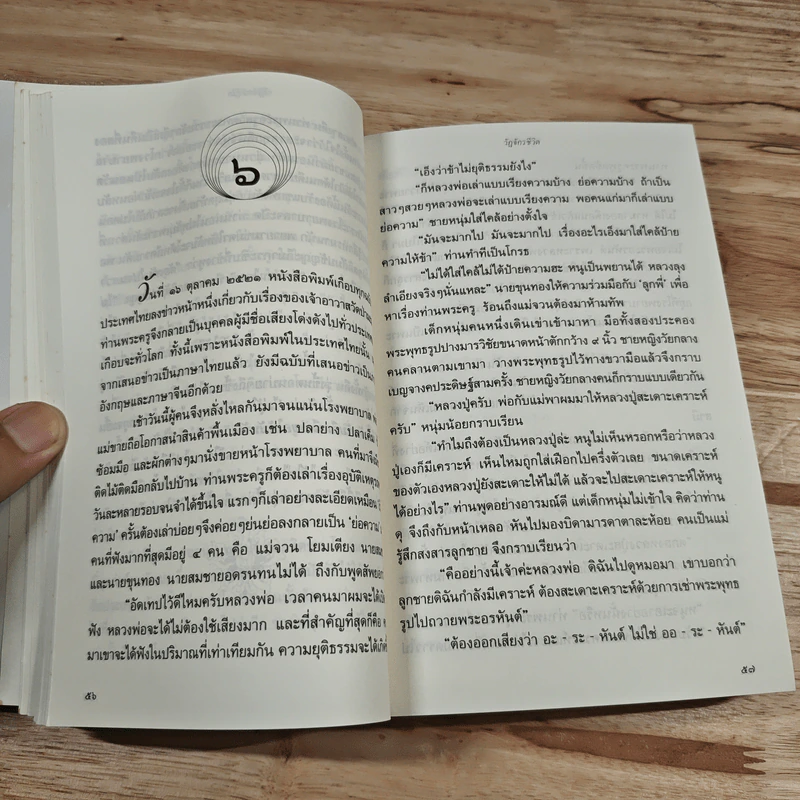 ๖
วันที่ ๑๖ ตุลาคม ๒๕๒๑ หนังสือพิมพ์เกือบทุก
ประเทศไทยลงข่าวหน้าหนึ่งเกี่ยวกับเรื่องของเจ้าอาวาสวัดป่า
ท่านพระครูจึงกลายเป็นบุคคลผู้มีชื่อเสียงโด่งดังไปทั่วประเทศ
เกือบจะทั่วโลก ทั้งนี้เพราะหนังสือพิมพ์ในประเทศไทยนั้น
จากเสนอข่าวเป็นภาษาไทยแล้ว ยังมีฉบับที่เสนอข่าวเป็น
อังกฤษและภาษาจีนอีกด้วย
เช้าวันนี้ผู้คนจึงหลั่งไหลกันมาจนแน่นโรงพยาบาล
แม่ขายถือโอกาสนำสินค้าพื้นเมือง เช่น ปลาย่าง ปลาเค็ม
ซ้อมมือ และผักต่างๆมานั่งขายหน้าโรงพยาบาล คนที่มาจึง
ติดไม้ติดมือกลับไปบ้าน ท่านพระครูก็ต้องเล่าเรื่องอุบัติเหตุ
วันละหลายรอบจนจำได้ขึ้นใจ แรกๆก็เล่าอย่างละเอียดเหมือน
ความ' ครั้นต้องเล่าบ่อยๆจึงค่อยๆย่นย่อลงกลายเป็น 'ย่อความ'
คนที่ฟังมากที่สุดมีอยู่ ๔ คน คือ แม่จวน โยมเตียง นาย
และนายขุนทอง นายสมชายอดรนทนไม่ได้ ถึงกับพูดสัพยอก
"อัดเทปไว้ดีไหมครับหลวงพ่อ เวลาคนมาผมจะได้เปิด
ฟัง หลวงพ่อจะได้ไม่ต้องใช้เสียงมาก และที่สำคัญที่สุดก็คือ
มาเขาจะได้ฟังในปริมาณที่เท่าเทียมกัน ความยุติธรรมจะได้เกิด
๕๖
วัฏจักรชีวิต
"เอ็งว่าข้าไม่ยุติธรรมยังไง"
"ก็หลวงพ่อเล่าแบบเรียงความบ้าง ย่อความบ้าง ถ้าเป็น
สาวๆสวยๆหลวงพ่อจะเล่าแบบเรียงความ พอคนแก่มาก็เล่าแบบ
ย่อความ" ชายหนุ่มใส่ไคล้อย่างตั้งใจ
"มันจะมากไป มันจะมากไป เรื่องอะไรเอ็งมาใส่ไคล้ป้าย
ความให้ข้า" ท่านทำทีเป็นโกรธ
"ไม่ได้ใส่ไคล้ไม่ได้ป้ายความฮะ หนูเป็นพยานได้ หลวงลุง
ลำเอียงจริงๆนั่นแหละ" นายขุนทองให้ความร่วมมือกับ 'ลูกพี่' เพื่อ
หาเรื่องท่านพระครู ร้อนถึงแม่จวนต้องมาห้ามทัพ
เด็กหนุ่มคนหนึ่งเดินเข่าเข้ามาหา มือทั้งสองประคอง
พระพุทธรูปปางมารวิชัยขนาดหน้าตักกว้าง ๙ นิ้ว ชายหญิงวัยกลาง
คนคลานตามเขามา วางพระพุทธรูปไว้ทางขวามือแล้วจึงกราบ
เบญจางคประดิษฐ์สามครั้ง ชายหญิงวัยกลางคนก็กราบแบบเดียวกัน
"หลวงปู่ครับ พ่อกับแม่พาผมมาให้หลวงปู่สะเดาะเคราะห์
ครับ" หนุ่มน้อยกราบเรียน
"ทำไมถึงต้องเป็นหลวงปู่ล่ะ หนูไม่เห็นหรอกหรือว่าหลวง
ปู่เองก็มีเคราะห์ เห็นไหมถูกใส่เฝือกไปครึ่งตัวเลย ขนาดเคราะห์
ของตัวเองหลวงปู่ยังสะเดาะให้ไม่ได้ แล้วจะไปสะเดาะเคราะห์ให้หนู
ได้อย่างไร" ท่านพูดอย่างอารมณ์ดี แต่เด็กหนุ่มไม่เข้าใจ คิดว่าท่าน
ดุ จึงถึงกับหน้าเหลอ หันไปมองบิดามารดาตาละห้อย คนเป็นแม่
รู้สึกสงสารลูกชาย จึงกราบเรียนว่า
"คืออย่างนี้เจ้าค่ะหลวงพ่อ ดิฉันไปดูหมอมา เขาบอกว่า
ลูกชายดิฉันกำลังมีเคราะห์ ต้องสะเดาะเคราะห์ด้วยการเช่าพระพุทธ
รูปไปถวายพระอรหันต์"
"ต้องออกเสียงว่า อะ - ระ - หันต์ ไม่ใช่ ออ - ระ - หันต์"
๕๗